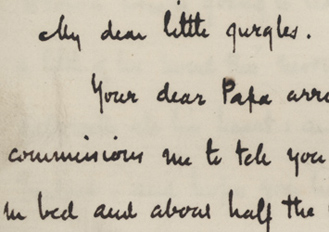 My dear little gurgles.
Your dear Papa arr
commissions me to tell you
in bed and about half the